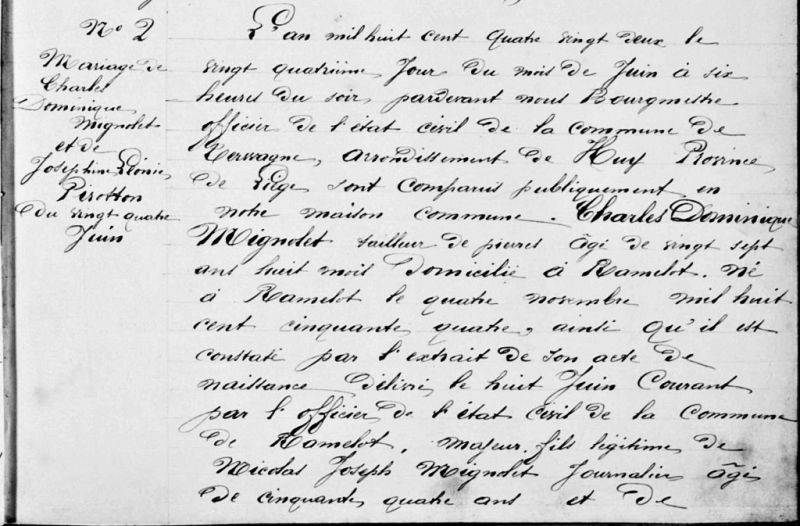 N° 2
Mariage de
Charles
Dominique
Mignolet
et de
Josephine Léonie
Pirotton
du vingt quatre
Juin
L'an mil huit cent quatre vingt deux le
vingt quatrième Jour du mois de Juin à six
heures du soir, pardevant nous Bourgmestre
officier de l'état civil de la commune de
Terwagne, arrondissement de Huy Province
de Liége sont comparus publiquement en
notre maison commune. Charles Dominique
Mignolet tailleur de pierres âgé de vingt sept
ans huit mois Domicilié à Ramelot. Né
à Ramelot le quatre novembre mil huit
cent cinquante quatre, ainsi qu'il est
constaté par l'extrait de son acte de
naissance délivré le huit Juin Courant
par l'officier de l'état civil de la Commune
de Ramelot, majeur, fils légitime de
Nicolas Joseph Mignolet Journalier âgé
de cinquante quatre ans et de